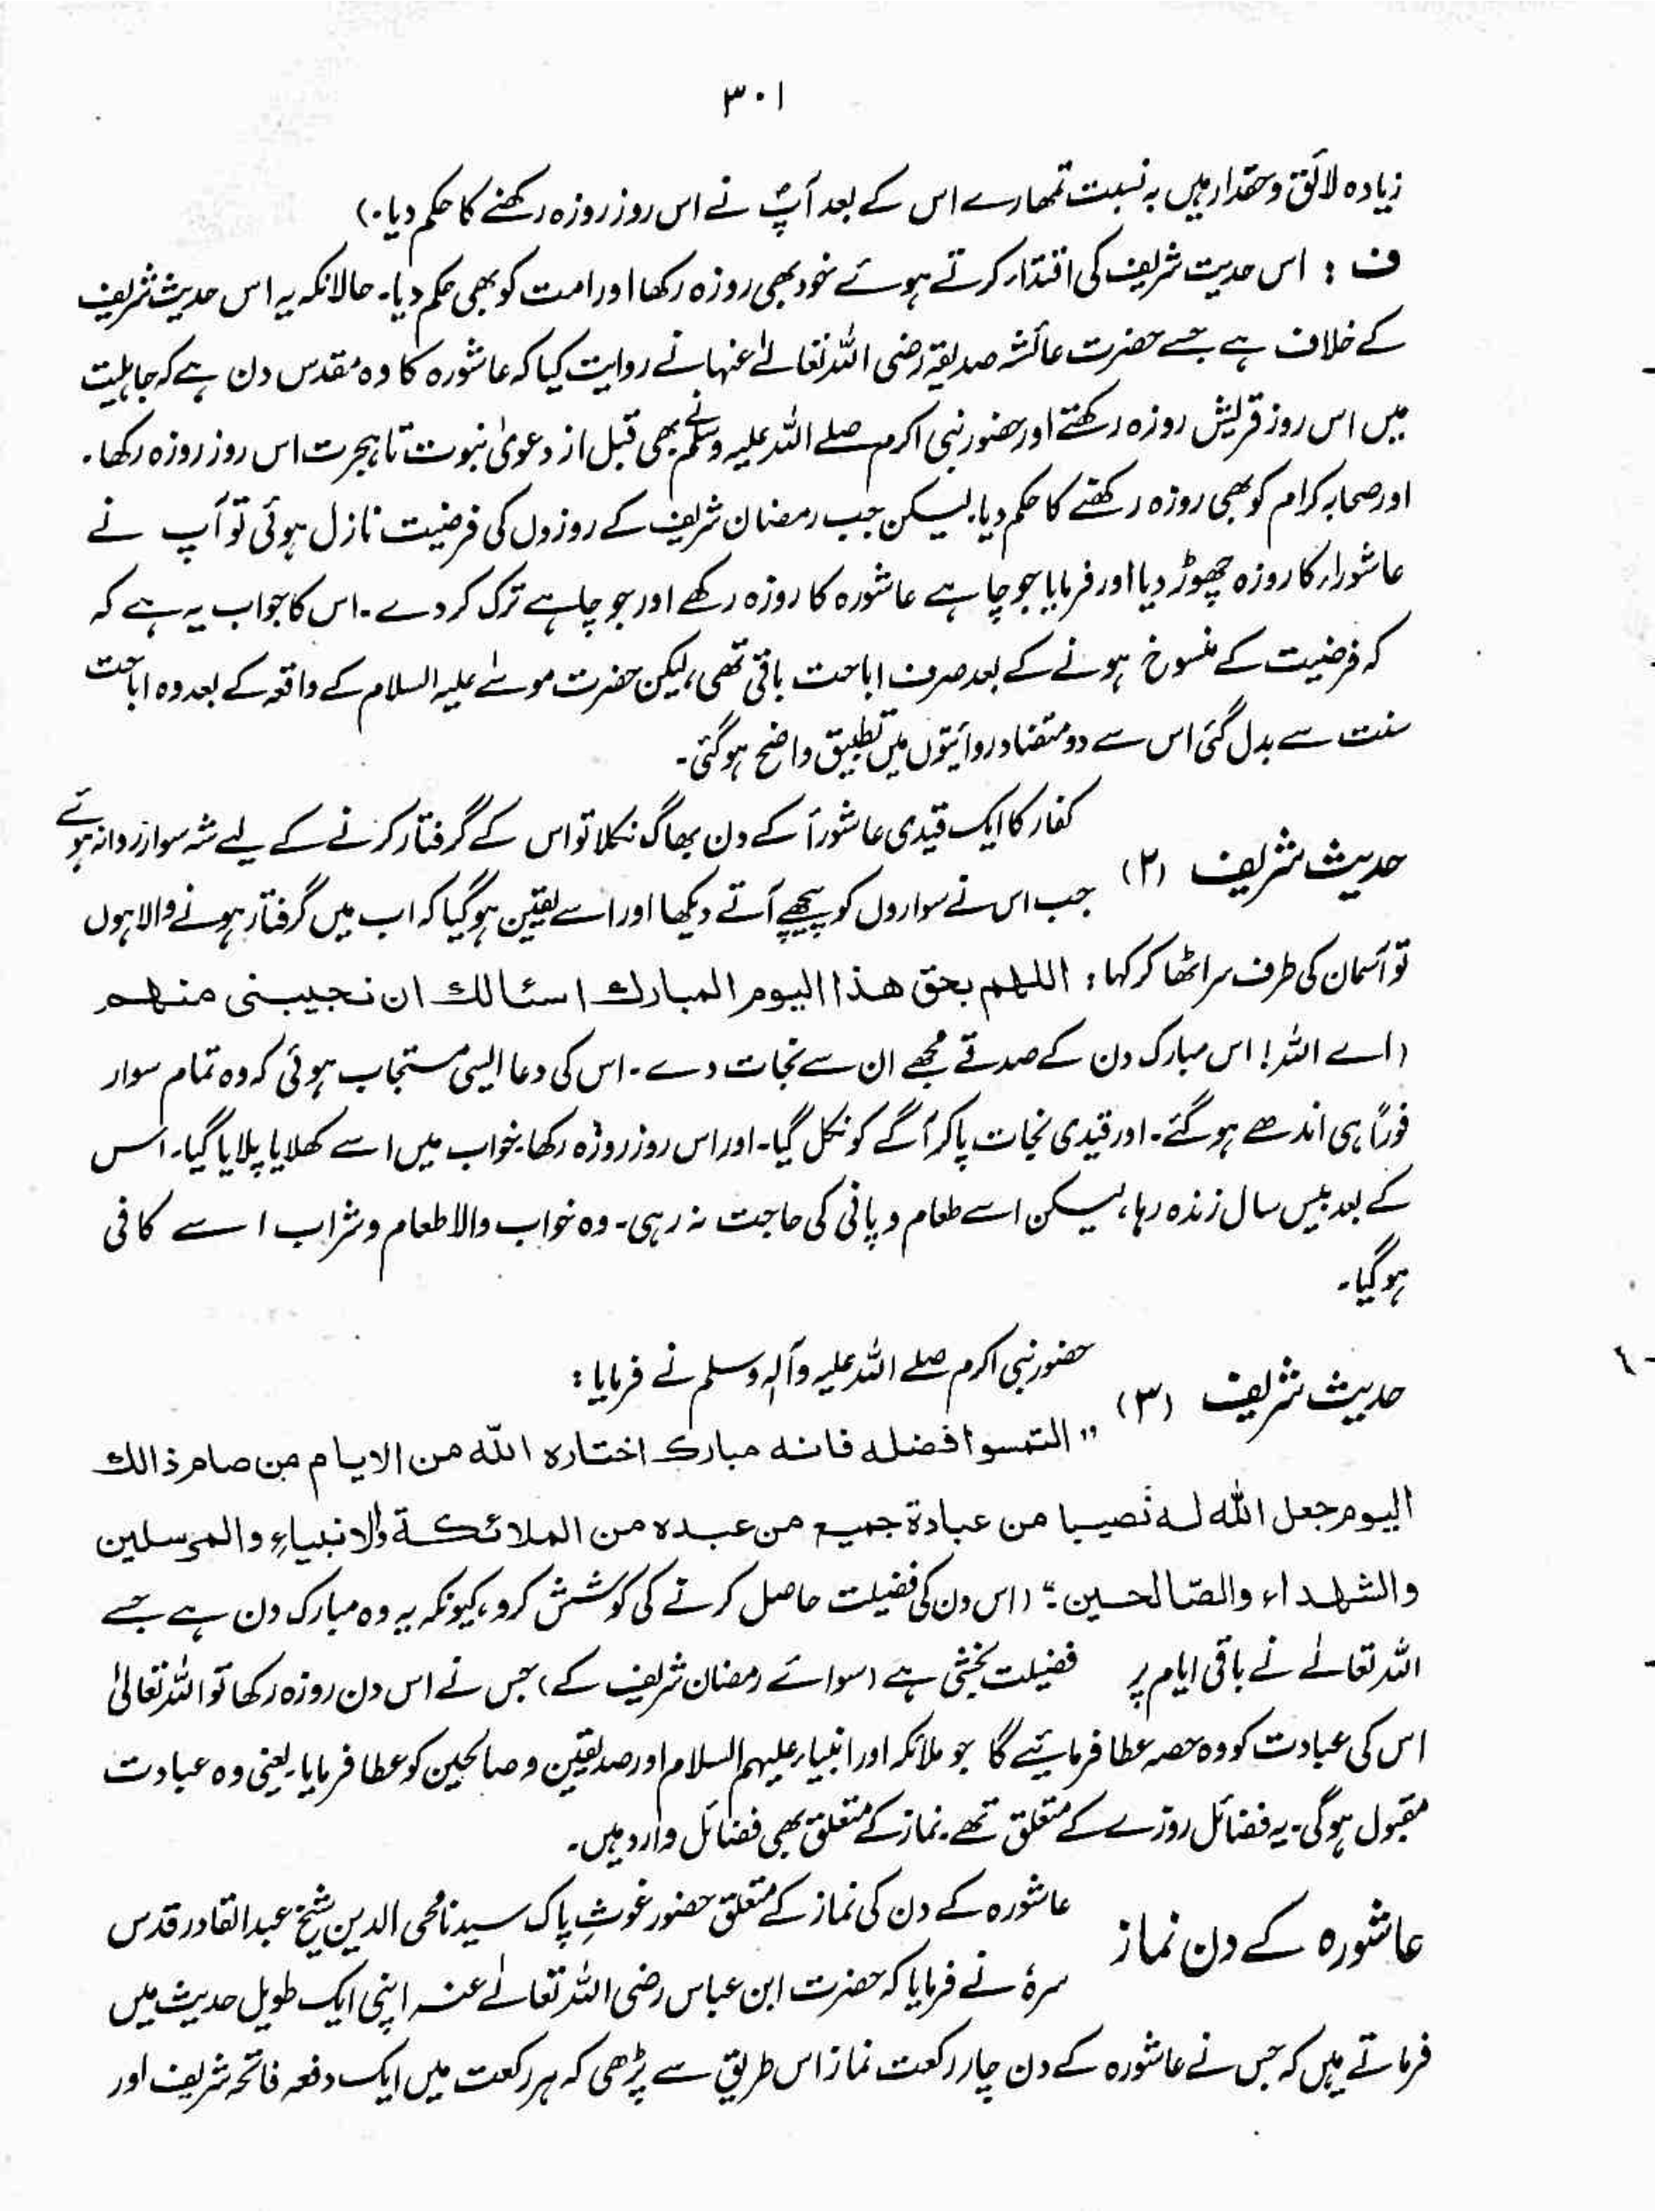 ۳۰۱
زیادہ لائق وحقدار ہیں بہ نسبت تمھارے اس کے بعد آپؐ نے اس روز روزہ رکھنے کا حکم دیا۔)
ف : اس حدیث شریف کی اقتدار کرتے ہوئے خود بھی روزہ رکھا اور امت کو بھی حکم دیا۔ حالانکہ یہ اس حدیث شریف
کے خلاف ہے جسے حضرت عائشہ صدیقہ رضی اللہ تعالےٰ عنہا نے روایت کیا کہ عاشورہ کا وہ مقدس دن ہے کہ جاہلیت
میں اس روز قریش روزہ رکھتے اور حضور نبی اکرم صلے اللہ علیہ وسلم نے بھی قبل از دعویٰ نبوت تا ہجرت اس روز روزہ رکھا۔
اور صحابہ کرام کو بھی روزہ رکھنے کا حکم دیا۔ لیکن جب رمضان شریف کے روزوں کی فرضیت نازل ہوئی تو آپ نے
عاشورار کا روزہ چھوڑ دیا اور فرمایا جو چاہے عاشورہ کا روزہ رکھے اور جو چاہے ترک کر دے۔ اس کا جواب یہ ہے کہ
کہ فرضیت کے منسوخ ہونے کے بعد صرف اباحت باقی تھی، لیکن حضرت موسےٰ علیہ السلام کے واقعہ کے بعد وہ اباحت
سنت سے بدل گئی اس سے دو متضاد روائیتوں میں تطبیق واضح ہوگئی۔
حدیث شریف (۲) کفار کا ایک قیدی عاشورأ کے دن بھاگ نکلا تو اس کے گرفتار کرنے کے لیے شہ سوار روانہ ہوئے
جب اس نے سواروں کو پیچھے آتے دیکھا اور اسے یقین ہوگیا کہ اب میں گرفتار ہونے والا ہوں
تو آسمان کی طرف سر اٹھا کر کہا : اللہم بحق ھذا الیوم المبارک اسئالک ان نجیبنی منھم
(اے اللہ! اس مبارک دن کے صدقے مجھے ان سے نجات دے۔ اس کی دعا ایسی مستجاب ہوئی کہ وہ تمام سوار
فورًا ہی اندھے ہو گئے۔ اور قیدی نجات پا کر آگے کو نکل گیا۔ اور اس روز روزہ رکھا۔ خواب میں اسے کھلایا پلایا گیا۔ اس
کے بعد بیس سال زندہ رہا، لیکن اسے طعام و پانی کی حاجت نہ رہی۔ وہ خواب والا طعام و شراب اسے کافی
ہو گیا۔
حدیث شریف (۳) حضور نبی اکرم صلے اللہ علیہ وآلہ وسلم نے فرمایا :
"التمسوا فضلہ فانہ مبارک اختارہ اللہ من الایام من صام ذالک
الیوم جعل اللہ لہ نصیبا من عبادۃ جمیع من عبدہ من الملائکۃ والانبیاءِ والمرسلین
والشھداء والصّالحسین۔" (اس دن کی فضیلت حاصل کرنے کی کوشش کرو، کیونکہ یہ وہ مبارک دن ہے جسے
اللہ تعالےٰ نے باقی ایام پر فضیلت بخشی ہے (سوائے رمضان شریف کے) جس نے اس دن روزہ رکھا تو اللہ تعالیٰ
اس کی عبادت کو وہ حصہ عطا فرمائیے گا جو ملائکہ اور انبیار علیہم السلام اور صدیقین و صالحین کو عطا فرمایا۔ یعنی وہ عبادت
مقبول ہوگی۔ یہ فضائل روزے کے متعلق تھے۔ نماز کے متعلق بھی فضائل وارد ہیں۔
عاشورہ کے دن نماز عاشورہ کے دن کی نماز کے متعلق حضور غوثِ پاک سیدنا محی الدین شیخ عبدالقادر قدس
سرہٗ نے فرمایا کہ حضرت ابن عباس رضی اللہ تعالےٰ عنہ اپنی ایک طویل حدیث میں
فرماتے ہیں کہ جس نے عاشورہ کے دن چار رکعت نماز اس طریق سے پڑھی کہ ہر رکعت میں ایک دفعہ فاتحہ شریف اور